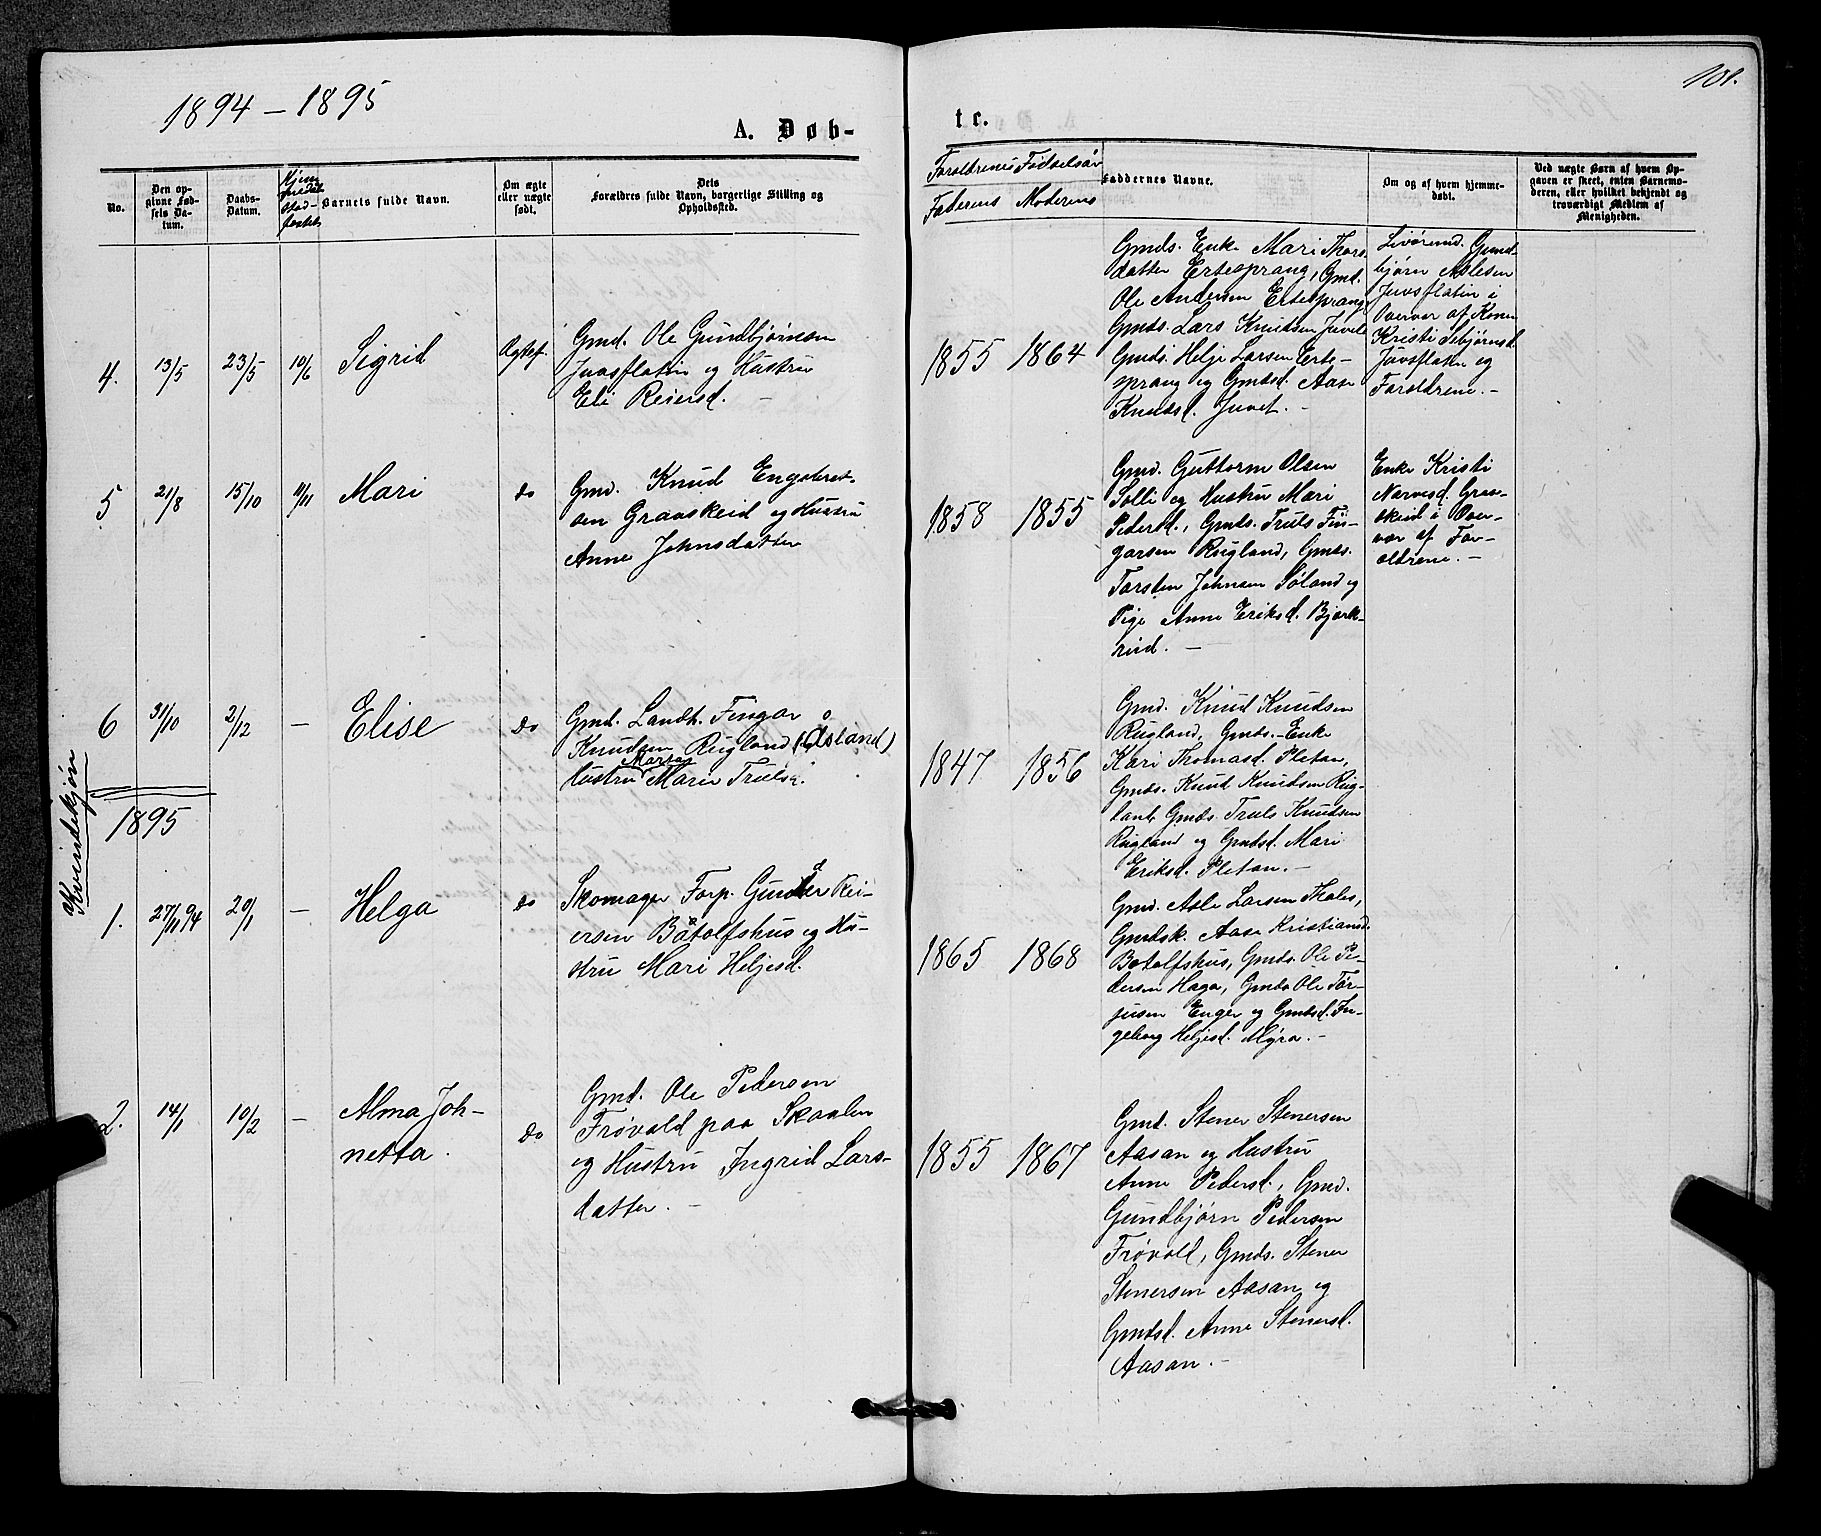 1894 - 1895
101.
A. Døb-
te.
No.
Den op-
givne Fød-
sels Da-
tum.
Daabs-
Datum.
Hjem-
medøb
stad-
festet
Barnets fulde Navn.
Om ægte
eller uægte
født.
Dets
Forældres fulde Navn, borgerlige Stilling og
Opholdssted.
Forældrenes Fødselsår
Faderens Moderens
Faddernes Navne.
Om og af hvem hjemme-
døbt.
Ved uægte Barn af hvem Op-
gaven er skeet, enten Barnemo-
deren, eller hvilket bekjendt og
troværdigt Medlem af
Menigheden.
4. 13/5 23/5 10/6 Sigrid Ægtef.
Gmd. Ole Gundbjørnsen
Juvsflaten og Hustru
Eli Reiersd. -
1855 1864
Gmds. Enke Mari Thors-
datter Ertesprang, Gmd.
Ole Andersen Ertesprang
Gmds. Lars Knudsen Juvet
Gmds. Helje Larsen Erte-
sprang og Gmdsd. Aase
Knudsd. Juvet. -
Livøremd. Gund-
bjørn Aslesen
Juvsflatin i
Overvær af Konen
Kristi Sebjørnsd.
Juvsflaten og
Forældrene. -
5 21/8 15/10 11/11 Mari do
Gmd. Knud Engebret-
sen Gravskeid og Hustru
Anne Johnsdatter
1858 1855
Gmd. Guttorm Olsen
Solli og Hustru Mari
Pedersd., Gmds. Truls Fin-
garsen Rugland, Gmds.
Torsten Johnsen Søland og
Pige Anne Eriksd. Bjørk-
reid. -
Enke Kristi
Narvesd. Grav-
skeid i Over-
vær af For-
ældrene. -
6 31/10 2/12 - Elise do
Gmd. Landh. Fingar
Knudsen Rugland (Åsland)
Hustru Marie Trulsd.
Marta
1847 1856
Gmd. Knud Knudsen
Rugland, Gmds.-Enke
Kari Thomasd. Pletan,
Gmds. Knud Knudsen Rug-
land, Gmds. Truls Knudsen
Rugland og Gmdsd. Mari
Eriksd. Pletan. -
af Kvindekjøn
1895
1. 27/11 94 20/1 - Helga do
Skomager Forp. Gunder Rei-
ersen Båtolfshus og Hu-
stru Mari Heljesd.
1865 1868
Gmd. Asle Larsen Tholes,
Gmdsk. Aase Kristiansd.
Botolfshus, Gmds. Ole Pe-
dersen Haga, Gmds Ole Tor-
jusen Enger og Gmdsd. In-
geborg Heljesd. Myra. -
2. 14/1 10/2 - Alma Joh-
netta. do
Gmd. Ole Pedersen
Frøvold paa Skaalen
og Hustru Ingrid Lars-
datter. -
1855 1867
Gmd. Stener Stenersen
Aasan og Hustru
Anne Pedersd., Gmd.
Gundbjørn Pedersen
Frøvold, Gmds. Stener
Stenersen Aasan og
Gmdsd. Anne Stenersd.
Aasan. -